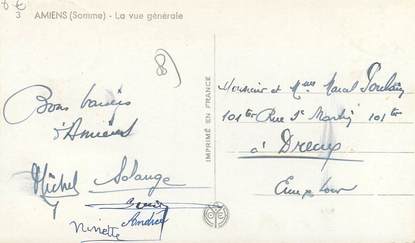 8 €
3 AMIENS (Somme) - La vue générale
89
Bons baisers
d'Amiens
Michel Solange
Andrée
Ninette
IMPRIMÉ EN FRANCE
Monsieur et Mme Marcel Poulain
101ter Rue St Martin 101ter
à Dreux
Eure et Loir